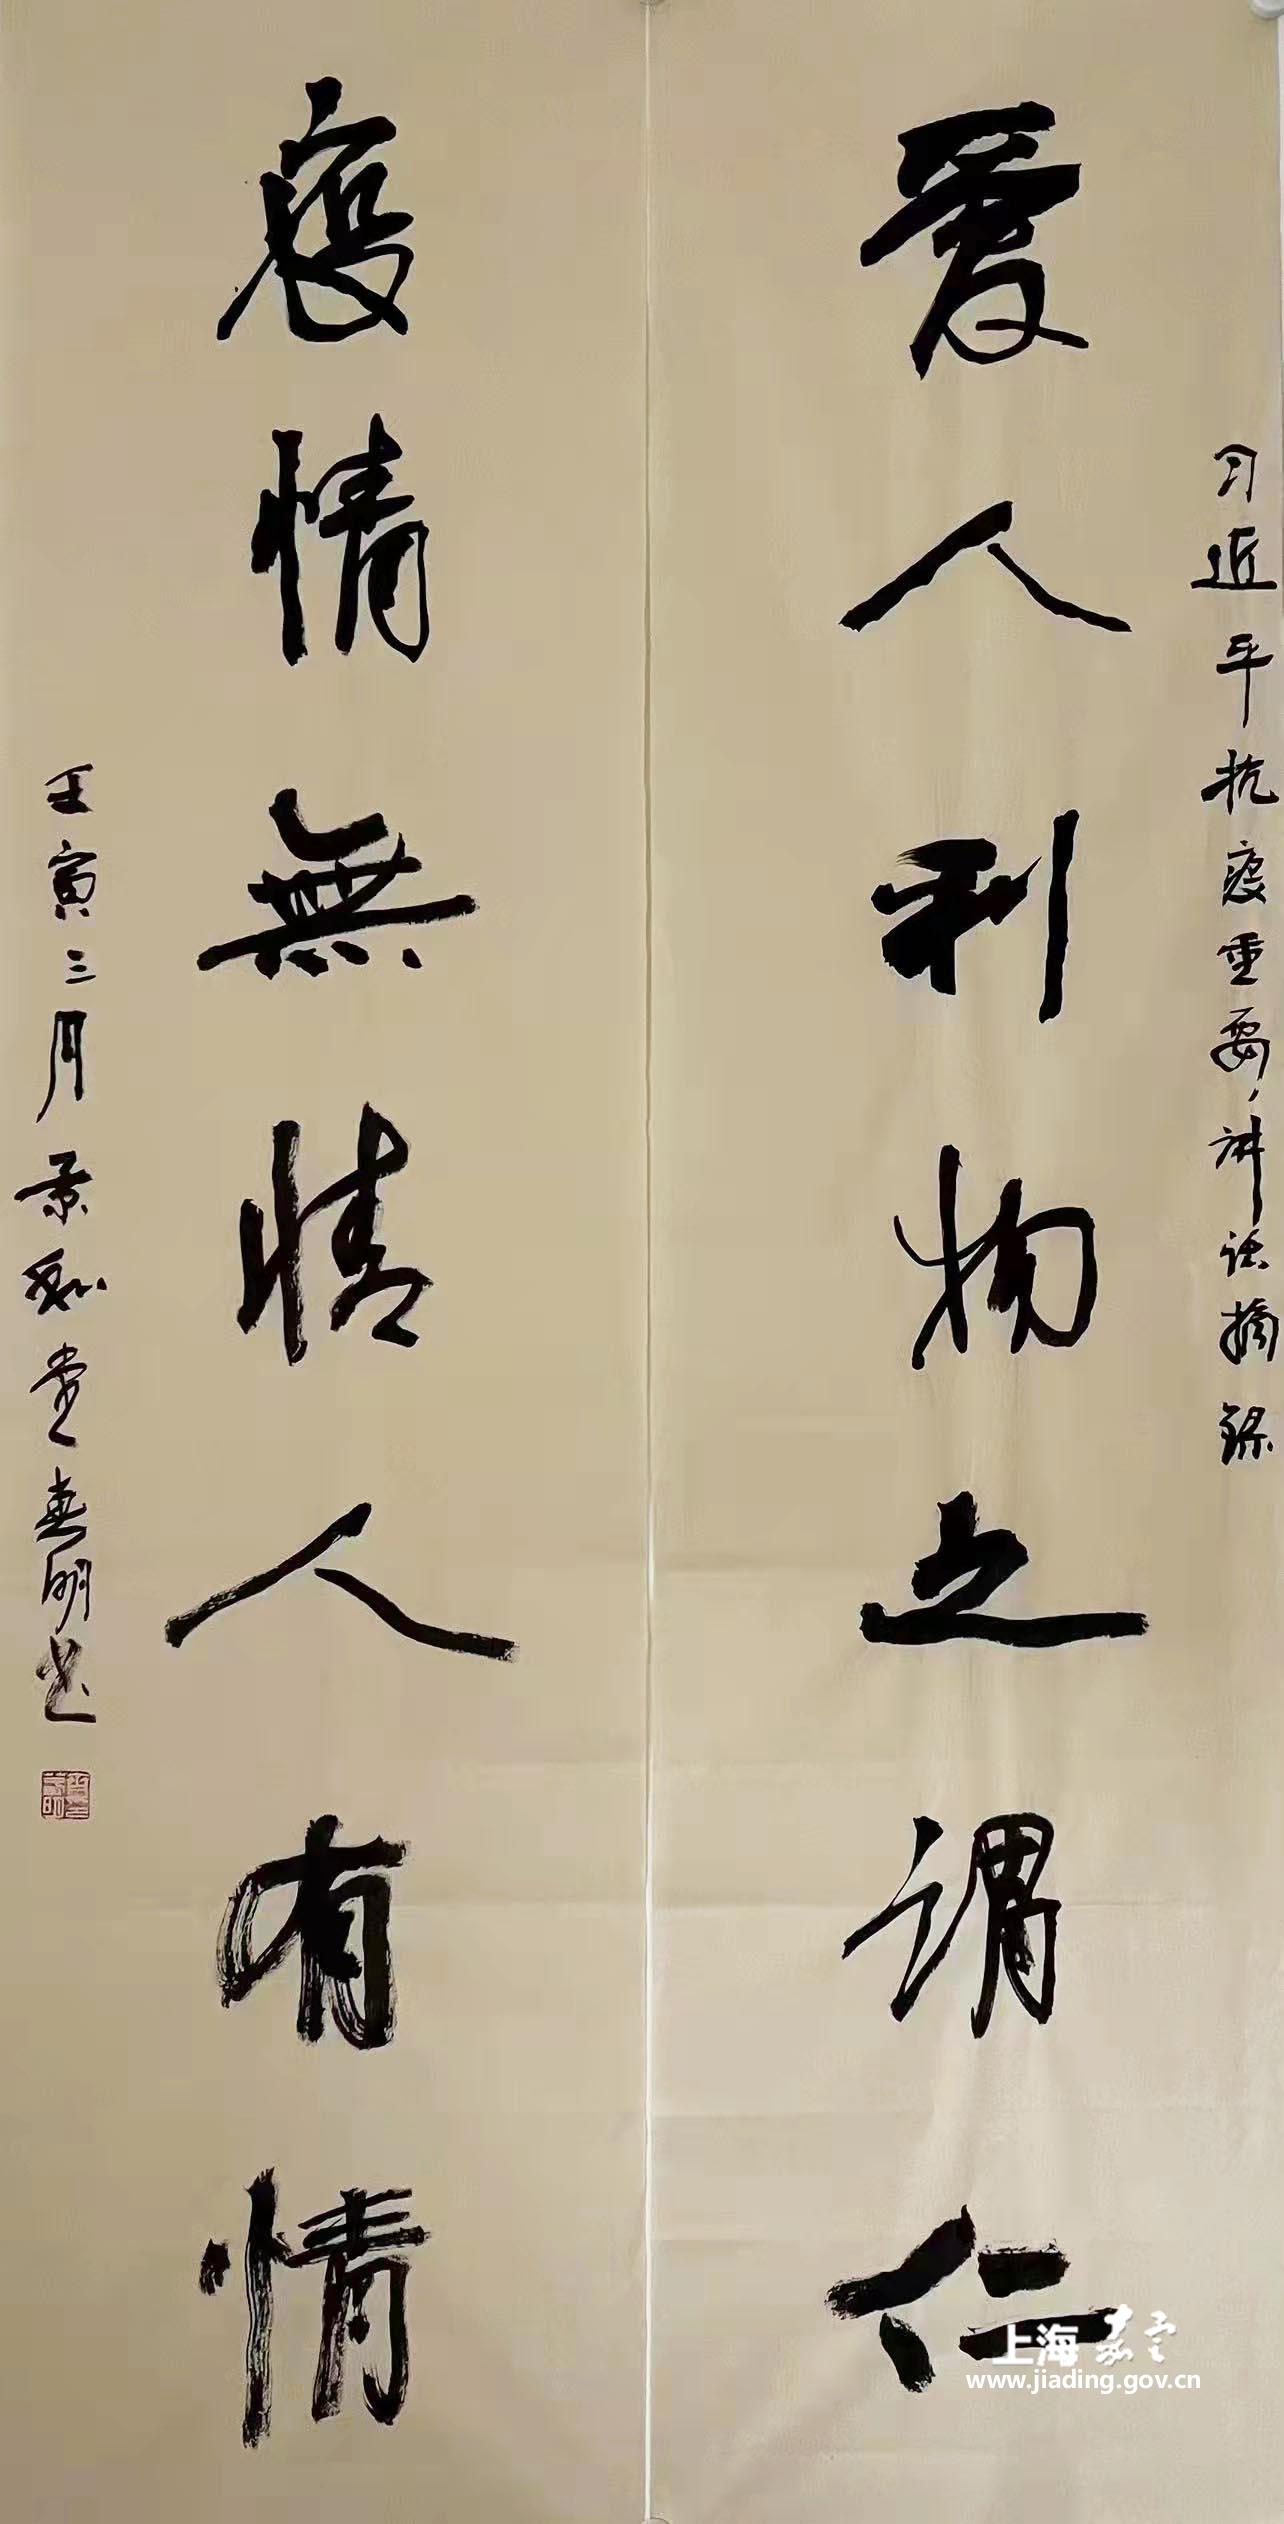 习近平抗疫重要讲话摘録
爱人利物之谓仁
疫情無情人有情
壬寅三月景和堂春明书
上海嘉定
www.jiading.gov.cn